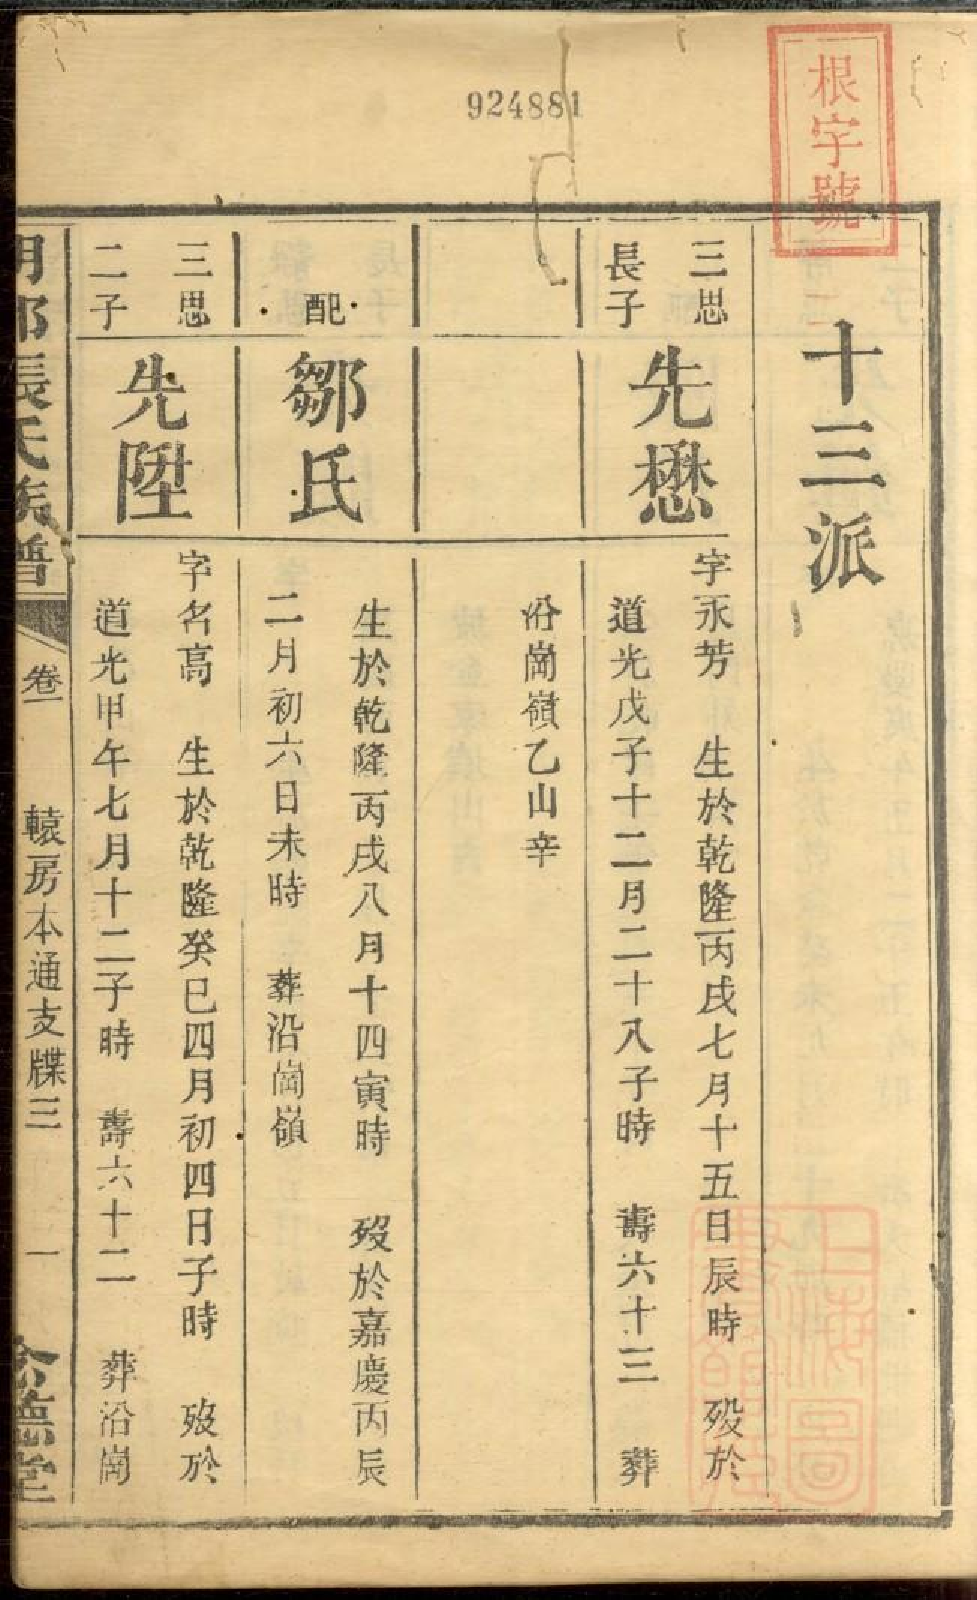 924881
根字號
十三派
三思
長子
先懋
字永芳 生於乾隆丙戌七月十五日辰時 歿於
道光戊子十二月二十八子時 壽六十三 葬
沿崗嶺乙山辛
配
鄒氏
生於乾隆丙戌八月十四寅時 歿於嘉慶丙辰
二月初六日未時 葬沿崗嶺
三思
二子
先陞
字名高 生於乾隆癸巳四月初四日子時 歿於
道光甲午七月十二子時 壽六十二 葬沿崗
張氏族譜 卷一 轅房本通支牒三 一 德堂
上海圖書館藏